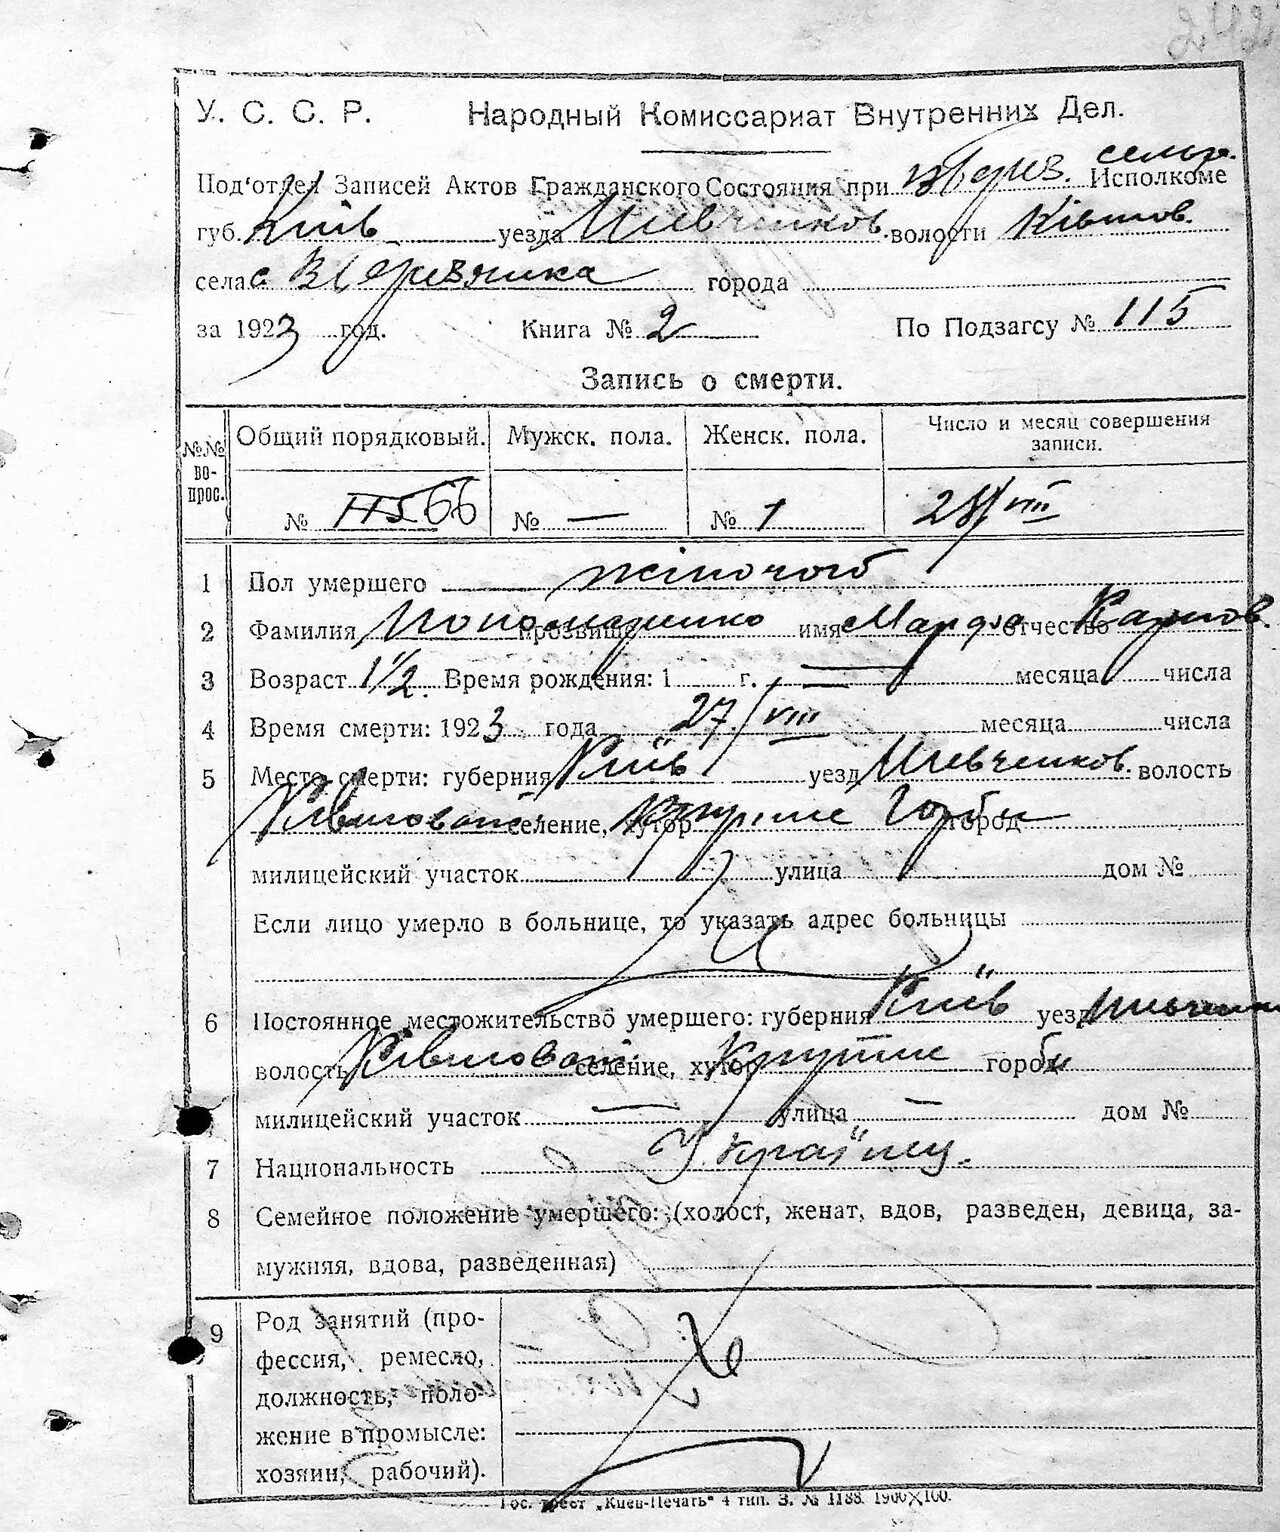 У. С. С. Р. Народный Комиссариат Внутренних Дел.
Под'отдел Записей Актов Гражданского Состояния при сельр. Исполкоме
губ. Київ уезда Шевченков. волости Ківшов.
села с. города
за 1923 год. Книга № 2 По Подзагсу № 115
Запись о смерти.
№№ во-прос. Общий порядковый. Мужск. пола. Женск. пола. Число и месяц совершения записи.
№ 115 66 № — № 1 28/VIII
1 Пол умершего жіночоґо
2 Фамилия Пономаренко прозвище имя Марфа отчество Карпов.
3 Возраст 1 1/2. Время рождения: 1 г. — месяца числа
4 Время смерти: 1923 года 27/VIII месяца числа
5 Место смерти: губерния Київ уезд Шевченков. волость
селение, хутор Круті Горби город
милицейский участок улица дом №
Если лицо умерло в больнице, то указать адрес больницы
6 Постоянное местожительство умершего: губерния Київ уезд Шевченков
волость селение, хутор Круті горби
милицейский участок — улица — дом №
7 Национальность Украінец.
8 Семейное положение умершего: (холост, женат, вдов, разведен, девица, за-
мужняя, вдова, разведенная)
9 Род занятий (про-
фессия, ремесло,
должность, поло-
жение в промысле:
хозяин, рабочий).
Гос. трест „Киев-Печать" 4 тип. З. № 1188. 1900×100.